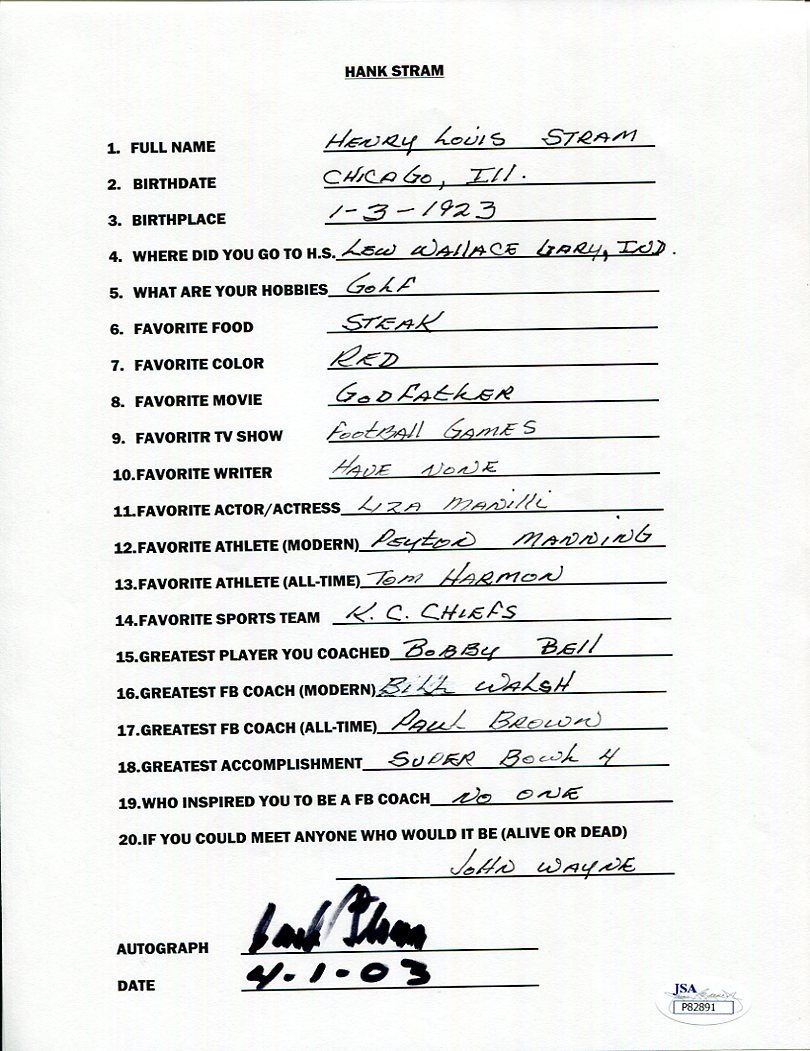 HANK STRAM
1. FULL NAME HENRY LOUIS STRAM
2. BIRTHDATE CHICAGO, Ill.
3. BIRTHPLACE 1-3-1923
4. WHERE DID YOU GO TO H.S. LEW WALLACE GARY, IND.
5. WHAT ARE YOUR HOBBIES GOLF
6. FAVORITE FOOD STEAK
7. FAVORITE COLOR RED
8. FAVORITE MOVIE GODFATHER
9. FAVORITR TV SHOW FOOTBALL GAMES
10.FAVORITE WRITER HAVE NONE
11.FAVORITE ACTOR/ACTRESS LIZA MANILLI
12.FAVORITE ATHLETE (MODERN) PEYTON MANNING
13.FAVORITE ATHLETE (ALL-TIME) TOM HARMON
14.FAVORITE SPORTS TEAM K.C. CHIEFS
15.GREATEST PLAYER YOU COACHED BOBBY BELL
16.GREATEST FB COACH (MODERN) BILL WALSH
17.GREATEST FB COACH (ALL-TIME) PAUL BROWN
18.GREATEST ACCOMPLISHMENT SUPER BOWL 4
19.WHO INSPIRED YOU TO BE A FB COACH NO ONE
20.IF YOU COULD MEET ANYONE WHO WOULD IT BE (ALIVE OR DEAD)
JOHN WAYNE
AUTOGRAPH Hank Stram
DATE 4-1-03
JSA
P82891